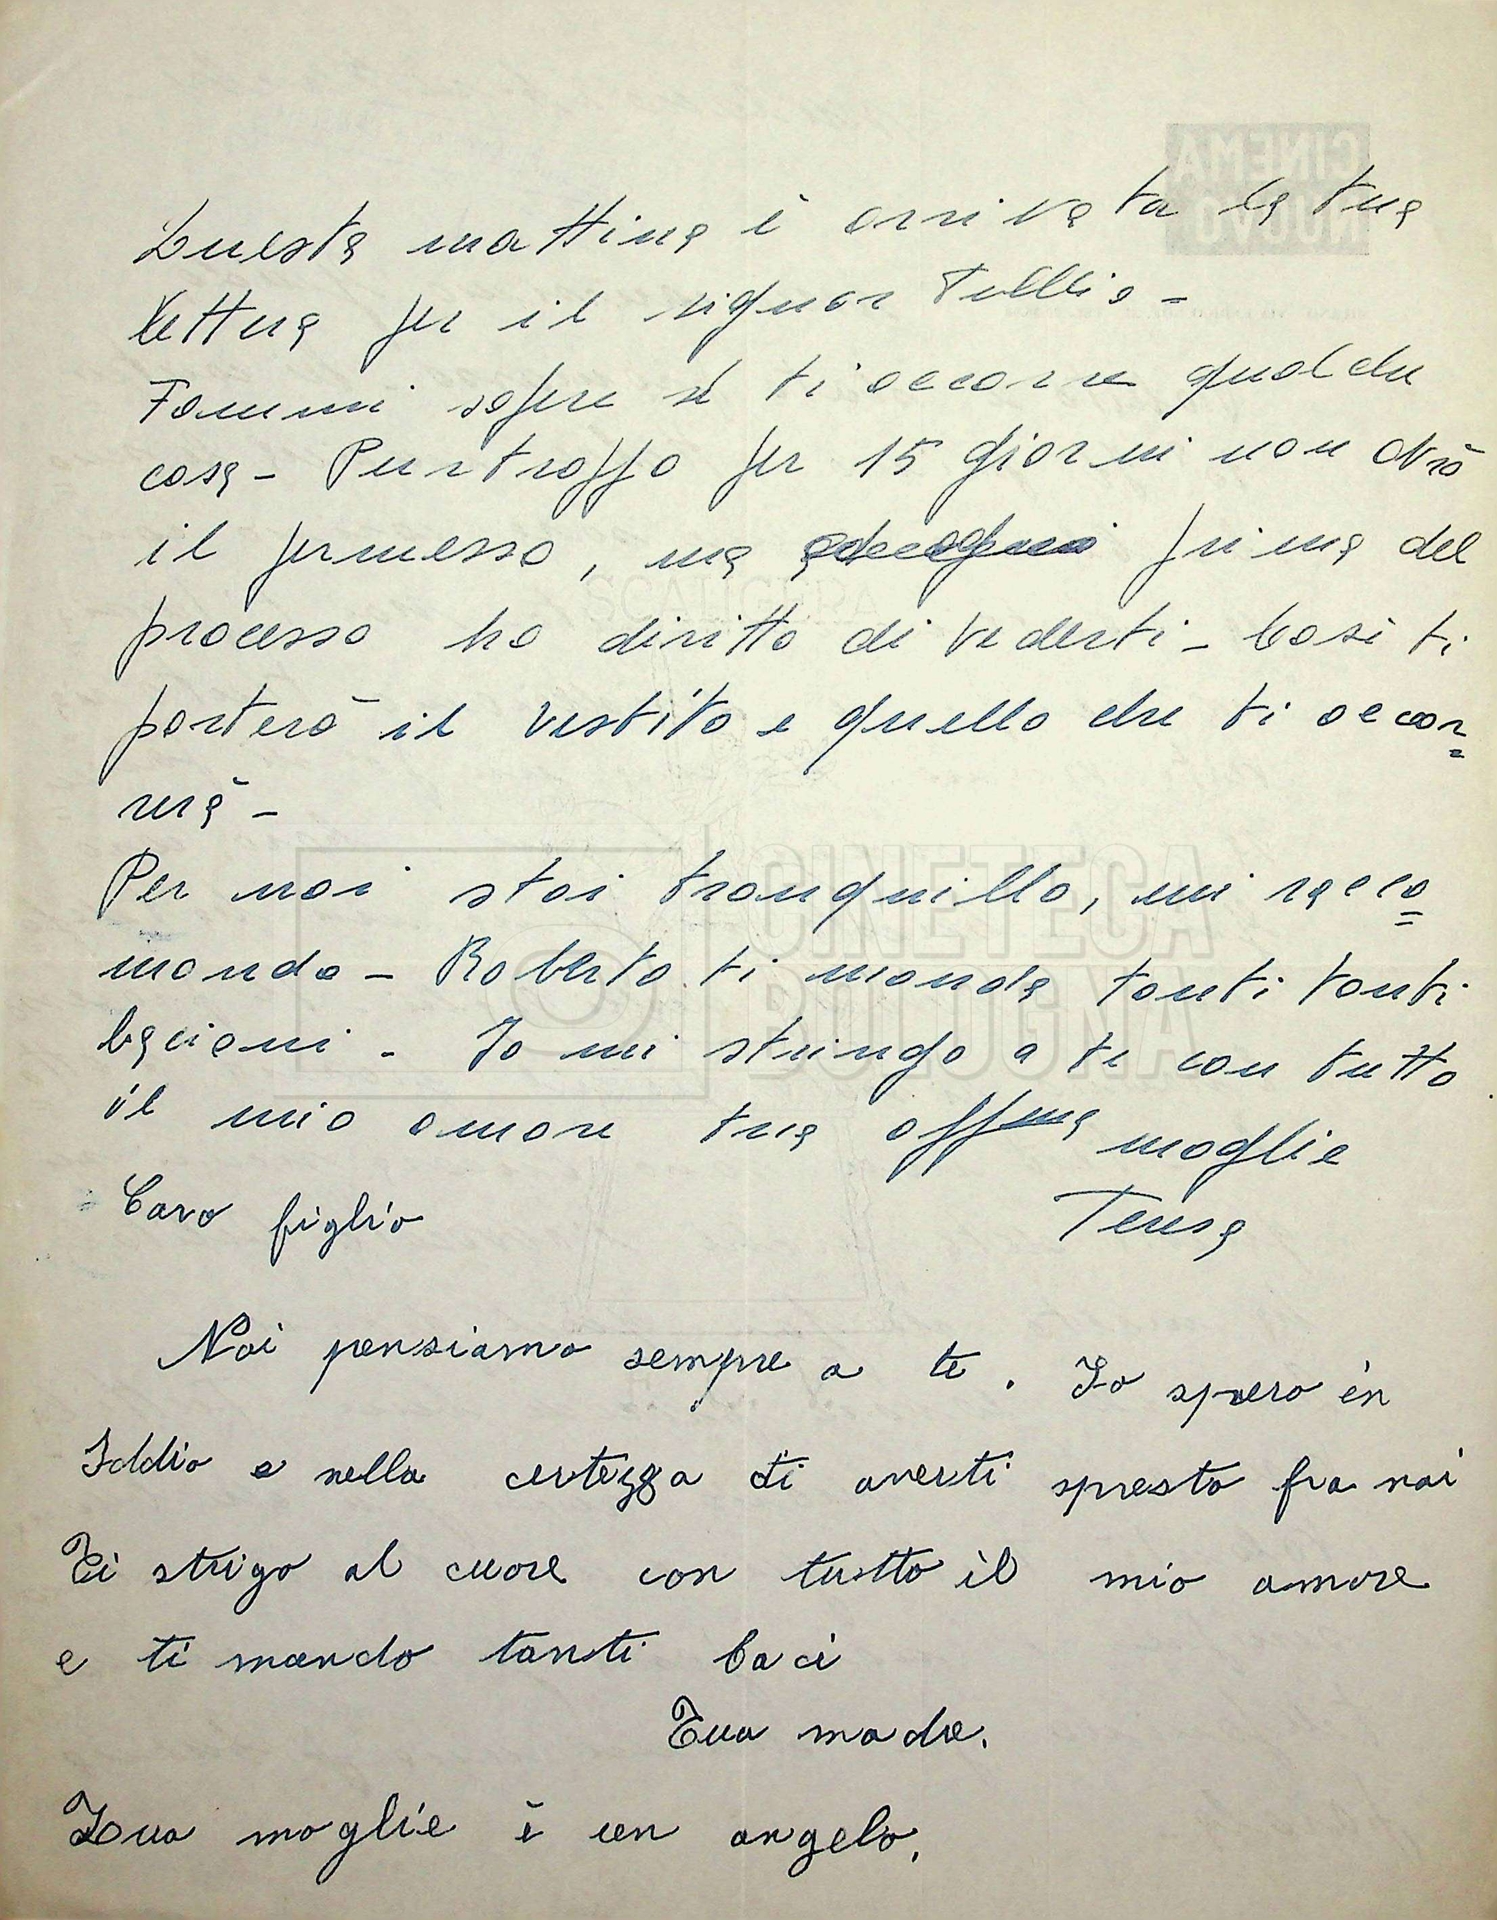 CINEMA
NUOVO
Questa mattina è arrivata la tua
lettera per il signor Tullio -
Fammi sapere se ti occorre qualche
cosa - Purtroppo per 15 giorni non avrò
il permesso, ma prima del
processo ho diritto di vederti - Così ti
porterò il vestito e quello che ti occor=
rerà -
Per noi stai tranquillo, mi racco=
mando - Roberto ti manda tanti tanti
bacioni - Io mi stringo a te con tutto
il mio amore tua aff.ma moglie
Teresa
Caro figlio
Noi pensiamo sempre a te. Io spero in
Iddio e nella certezza di averti spresto fra noi
Ti strigo al cuore con tutto il mio amore
e ti mando tanti baci
Tua madre.
Tua moglie è un angelo.
CINETECA
BOLOGNA